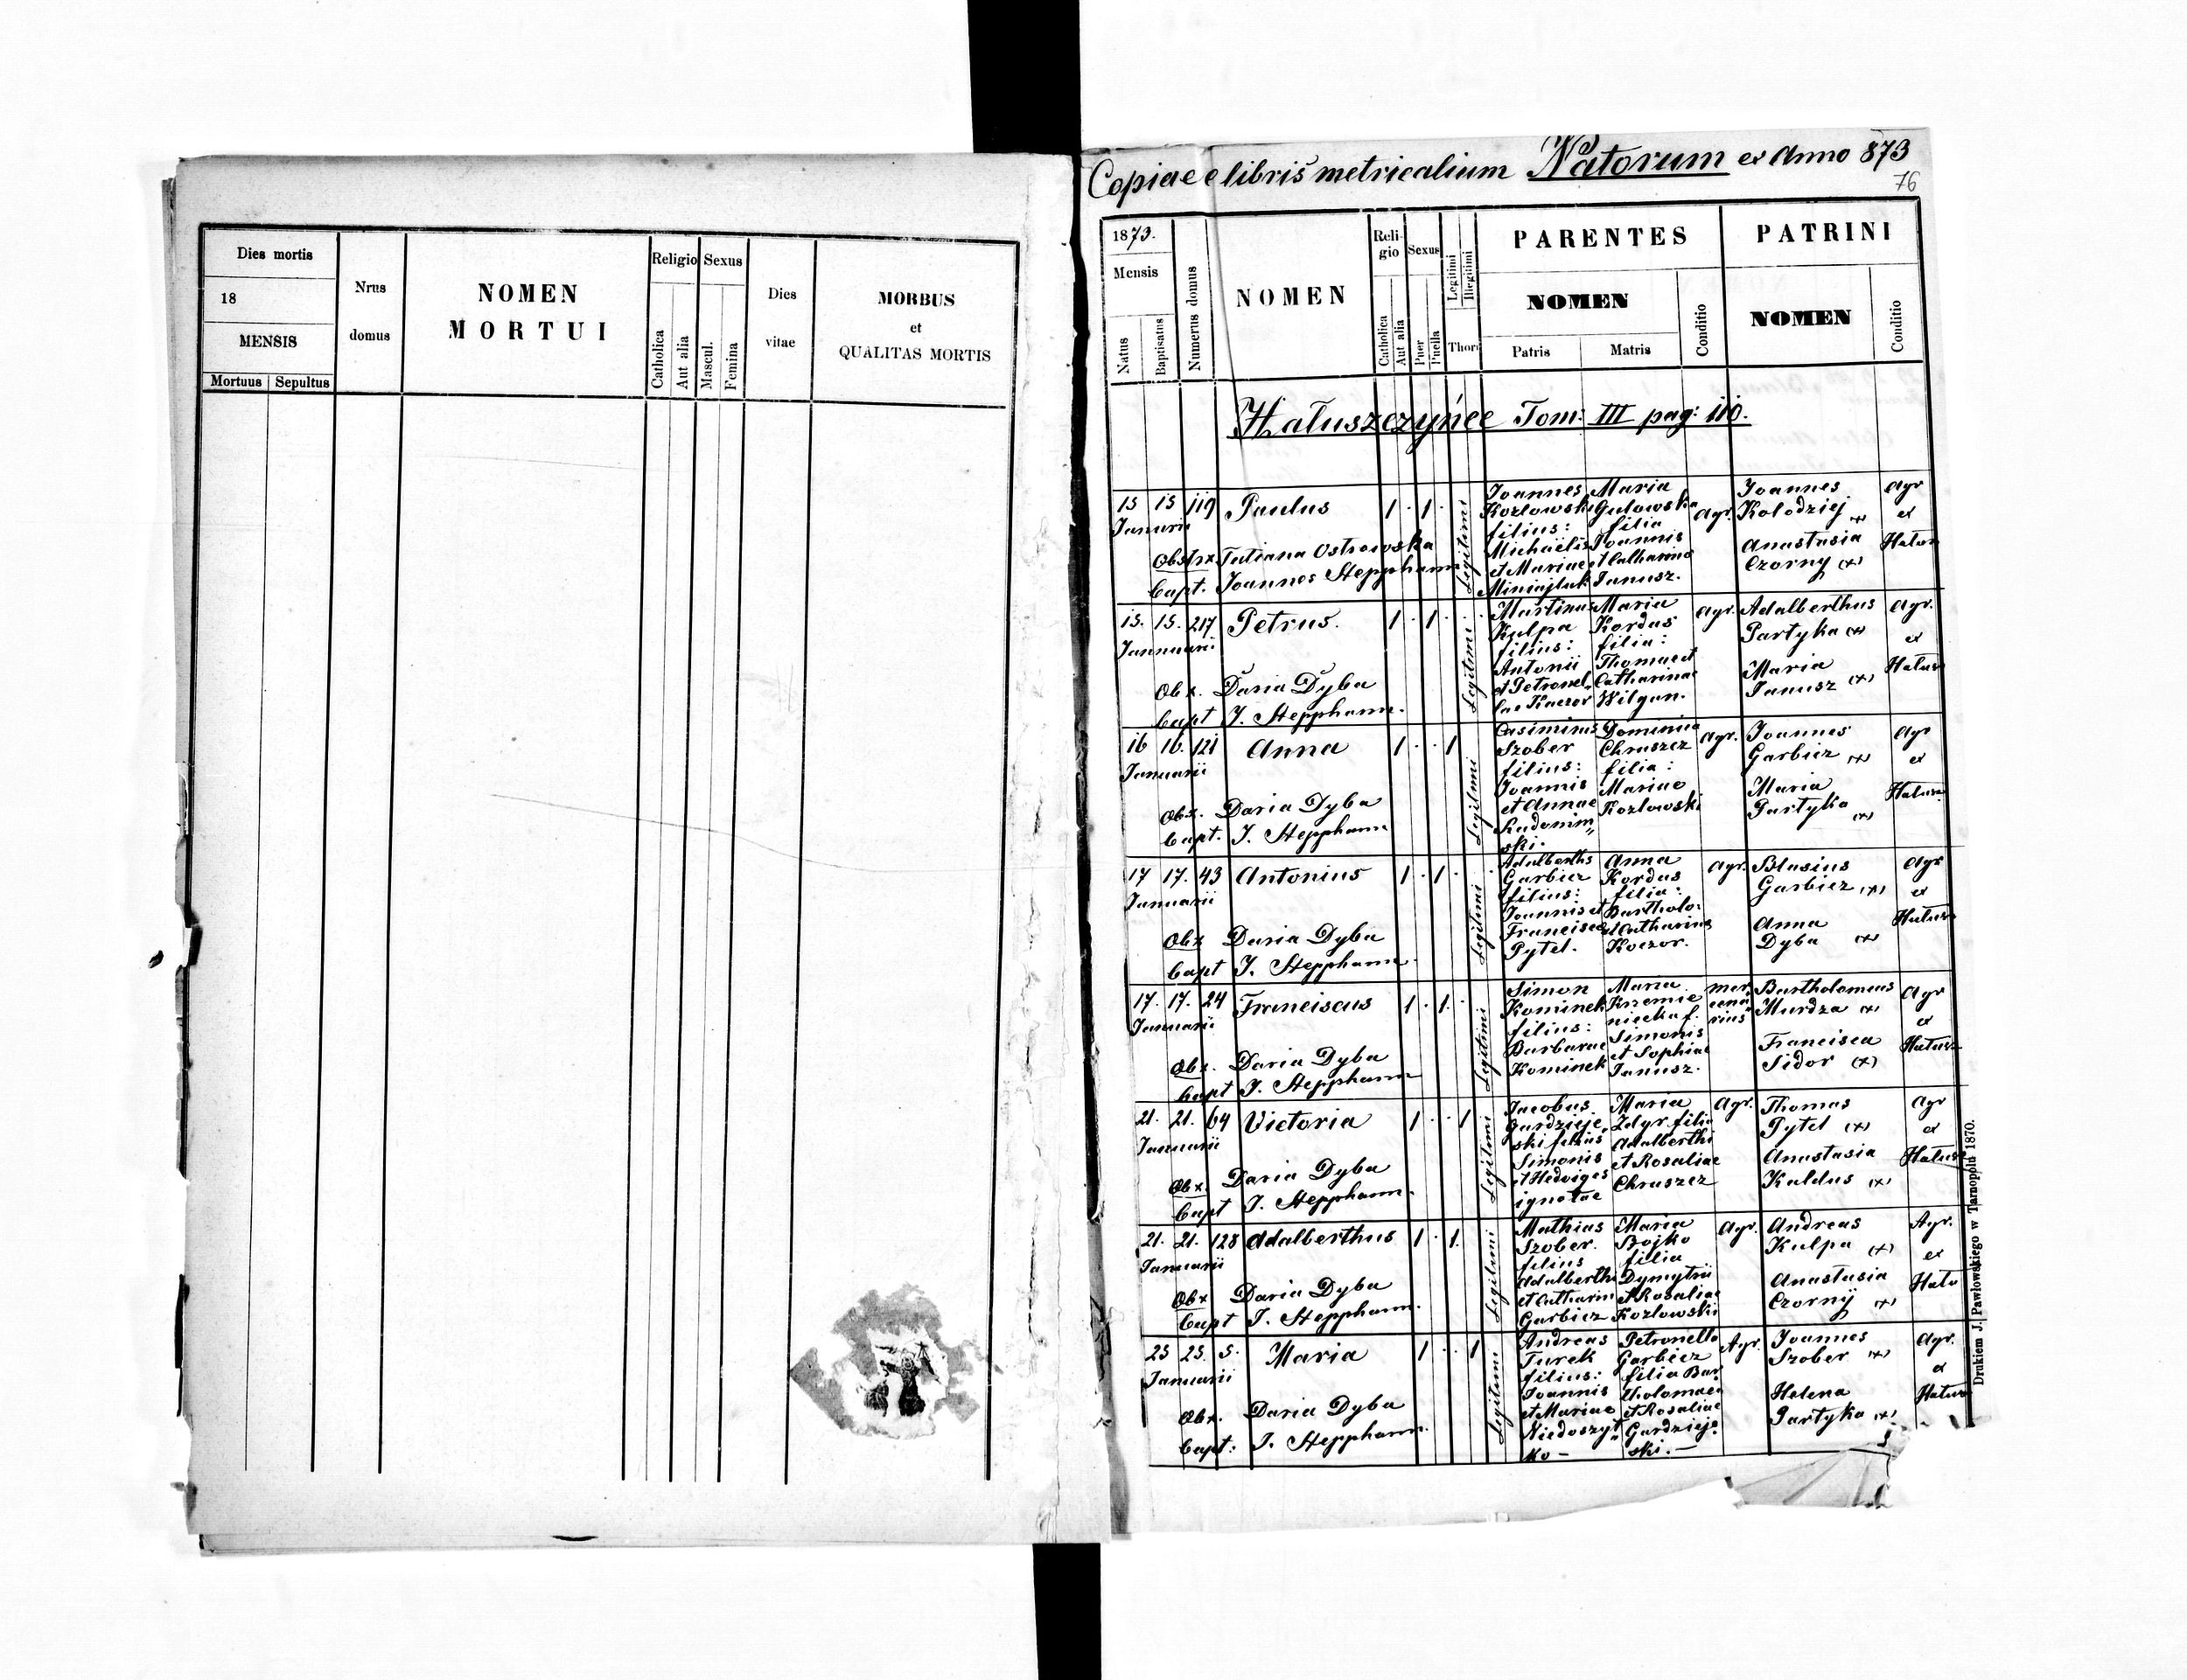 Dies mortis
18
MENSIS
Mortuus
Sepultus
Nrus
domus
NOMEN
MORTUI
Religio
Catholica
Aut alia
Sexus
Mascul.
Femina
Dies
vitae
MORBUS
et
QUALITAS MORTIS
Copiae e libris metricalium Natorum ex Anno 873
76
1873.
Mensis
Natus
Baptisatus
Numerus domus
NOMEN
Reli-
gio
Catholica
Aut alia
Sexus
Puer
Puella
Legitimi
Illegitimi
Thori
PARENTES
NOMEN
Patris
Matris
Conditio
PATRINI
NOMEN
Conditio
Hałuszczyńce Tom: III pag: 110.
15 15 119 Paulus 1 . 1 .
Januarii
Obstrx Tatiana Ostrowska
bapt. Joannes Stepphann
Legitimi
Joannes
Kozlowski
filius:
Michaëlis
et Mariae
Miniajluk
Maria
Gulowska
filia
Joannis
et Catharinae
Janusz.
Agr.
Joannes
Kolodziej (x)
Anastasia
Czorny (x)
Agr
ex
Hałus
15. 15. 217 Petrus. 1 . 1 .
Januarii
Obx. Daria Dyba
bapt J. Stepphann.
Legitimi
Martinus
Kulpa
filius:
Antonii
et Petronel-
lae Kaczor
Maria
Kordas
filia:
Thomae et
Catharinae
Wilgan.
Agr.
Adalberthus
Partyka (x)
Maria
Janusz (x)
Agr.
ex
Hałus
16 16. 121 Anna 1 . . 1
Januarii
Obx. Daria Dyba
bapt. J. Stepphann
Legitimi
Casimirus
Szober
filius:
Joannis
et Annae
Radomim„
ski.
Dominica
Chruszcz
filia:
Mariae
Kozlowski
Agr.
Joannes
Garbicz (x)
Maria
Partyka (x)
Agr
ex
Hałusz
17 17. 43 Antonius 1 . 1 .
Januarii
Obx Daria Dyba
bapt J. Stepphann.
Legitimi
Adalberths
Garbicz
filius:
Joannis et
Franciscae
Pytel.
Anna
Kordas
filia:
Bartholo:
et Catharina
Koczor.
Agr.
Blasius
Garbicz (x)
Anna
Dyba (x)
Agr
ex
Hałus
17. 17. 24 Franciscus 1 . 1 .
Januarii
Obx. Daria Dyba
bapt J. Stepphann
Legitimi
Simon
Kominek
filius:
Barbarae
Kominek
Maria
Krzemie
niecka f.
Simonis
et Sophiae
Janusz.
mer
cena
rius
Bartholomeus
Murdza (x)
Francisca
Sidor (x)
Agr
ex
Hałusz
21. 21. 64 Victoria 1 . . 1
Januarii
Obx. Daria Dyba
bapt J. Stepphann.
Legitimi
Jacobus
Gardzieje„
ski filius
Simonis
et Hedviges
ignotae
Maria
Zdyr. filia
Adalberthi
et Rosaliae
Chruszcz
Agr.
Thomas
Pytel (x)
Anastasia
Kaldus (x)
Agr
ex
Hałus
21. 21. 128 Adalberthus 1 . 1.
Januarii
Obx Daria Dyba
bapt J. Stepphann.
Legitimi
Mathias
Szober.
filius
Adalberthi
et Catharin
Garbicz
Maria
Bojko
filia
Dymytrii
et Rosaliae
Kozlowski
Agr.
Andreas
Kulpa (x)
Anastasia
Czornÿ (x)
Agr.
ex
Hału
25 25. 5. Maria 1 . . 1
Januarii
Obx. Daria Dyba
bapt: J. Stepphann.
Legitimi
Andreas
Turek
filius:
Joannis
et Mariae
Niedoszyt„
ko -
Petronella
Garbicz
filia Bar
tholomaei
et Rosaliae
Gardzieje.
ski. -
Agr.
Joannes
Szober (x)
Helena
Partyka (x)
Agr.
ex
Hałus
Drukiem J. Pawłowskiego w Tarnopolu 1870.